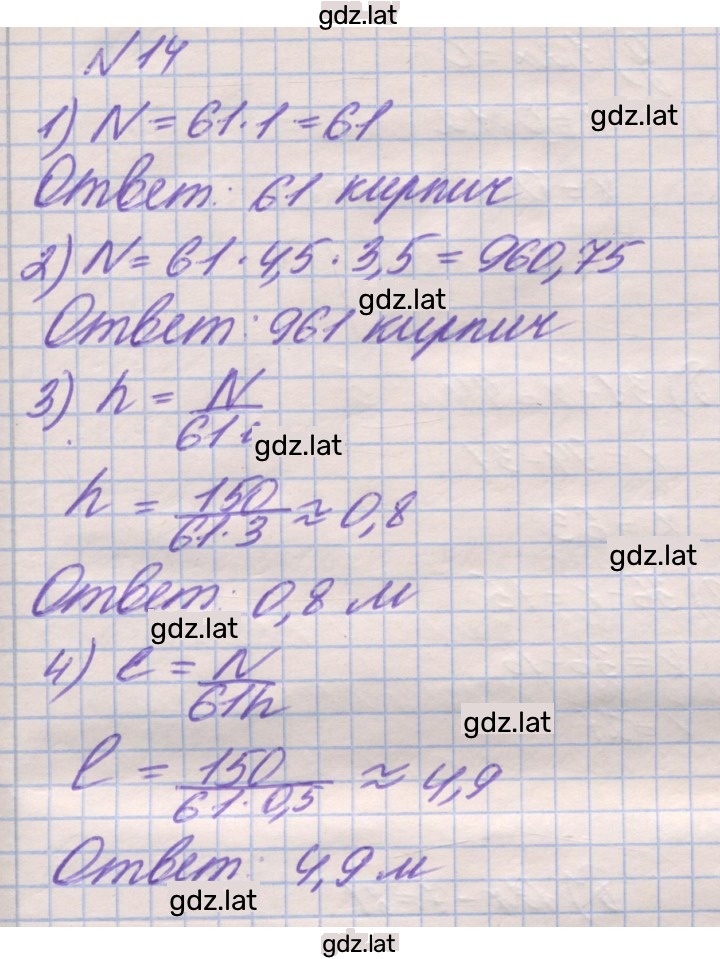 gdz.lat
N 14
1) N = 61 · 1 = 61
gdz.lat
Ответ: 61 кирпич
2) N = 61 · 4,5 · 3,5 = 960,75
gdz.lat
Ответ: 961 кирпич
3) h = N / 61
gdz.lat
h = 150 / 61 · 3 ≈ 0,8
gdz.lat
Ответ: 0,8 м
gdz.lat
4) ℓ = N / 61h
gdz.lat
ℓ = 150 / 61 · 0,5 ≈ 4,9
Ответ: 4,9 м
gdz.lat
gdz.lat